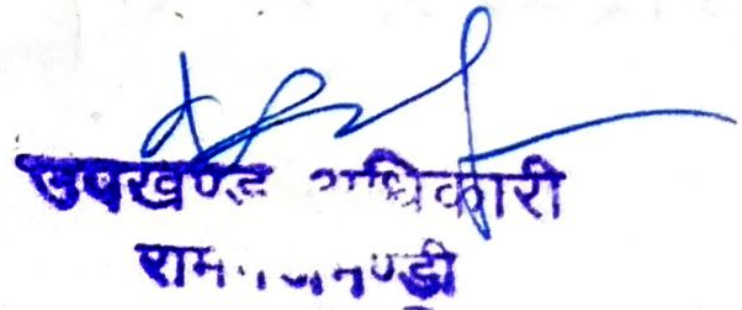 उपखण्ड अधिकारी
रामगंजमण्डी